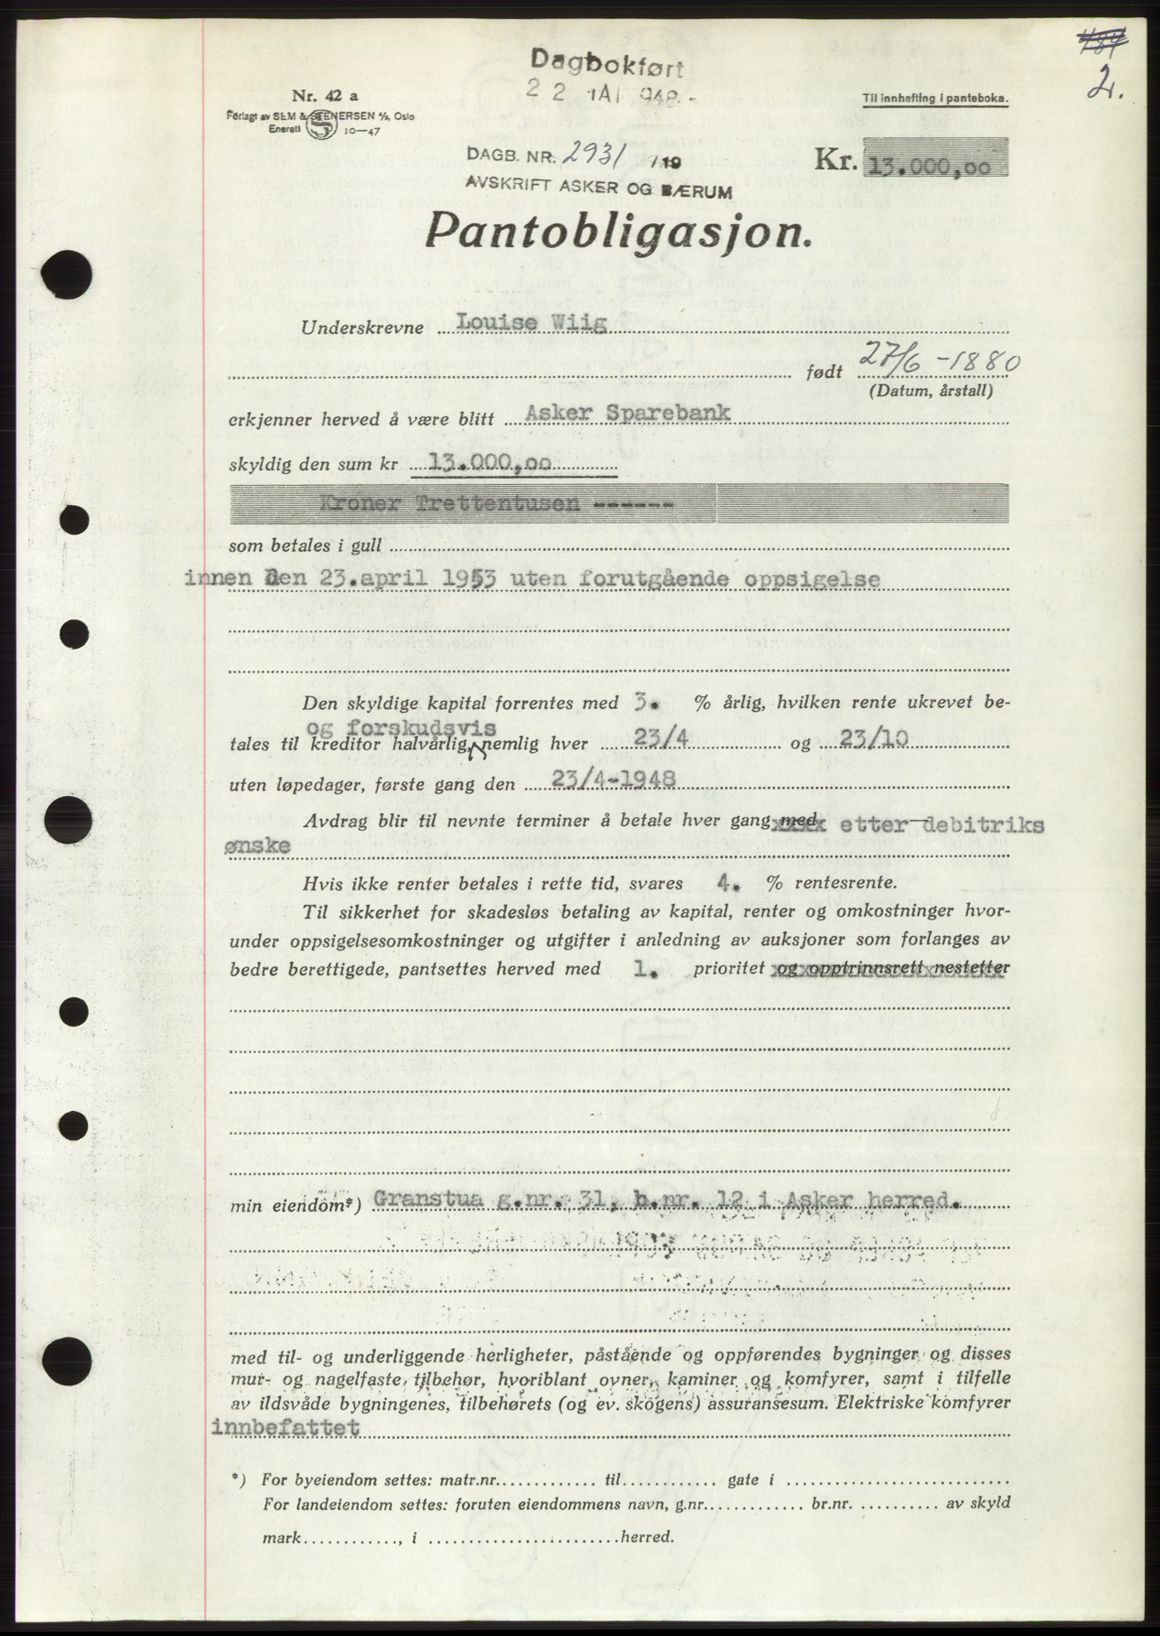 2.
Dagbokført
Nr. 42 a
Forlagt av SEM & STENERSEN A/S, Oslo
Enerett 10—47
Til innhefting i panteboka.
DAGB. NR. 2931 /19
AVSKRIFT ASKER OG BÆRUM
Kr. 13.000,oo
Pantobligasjon.
Underskrevne Louise Wiig
født 27/6 - 1880
(Datum, årstall)
erkjenner herved å være blitt Asker Sparebank
skyldig den sum kr 13.000,oo
Kroner Trettentusen ------
som betales i gull
innen den 23.april 1953 uten forutgående oppsigelse
Den skyldige kapital forrentes med 3. % årlig, hvilken rente ukrevet be-
og forskudsvis
tales til kreditor halvårlig, nemlig hver 23/4 og 23/10
uten løpedager, første gang den 23/4-1948
Avdrag blir til nevnte terminer å betale hver gang med etter debitriks
ønske
Hvis ikke renter betales i rette tid, svares 4. % rentesrente.
Til sikkerhet for skadesløs betaling av kapital, renter og omkostninger hvor-
under oppsigelsesomkostninger og utgifter i anledning av auksjoner som forlanges av
bedre berettigede, pantsettes herved med 1. prioritet og opptrinnsrett nestetter
min eiendom*) Granstua g.nr. 31, b.nr. 12 i Asker herred.
med til- og underliggende herligheter, påstående og oppførendes bygninger og disses
mur- og nagelfaste tilbehør, hvoriblant ovner, kaminer og komfyrer, samt i tilfelle
av ildsvåde bygningenes, tilbehørets (og ev. skogens) assuransesum. Elektriske komfyrer
innbefattet
*) For byeiendom settes: matr.nr. til gate i
For landeiendom settes: foruten eiendommens navn, g.nr. br.nr. av skyld
mark , i herred.